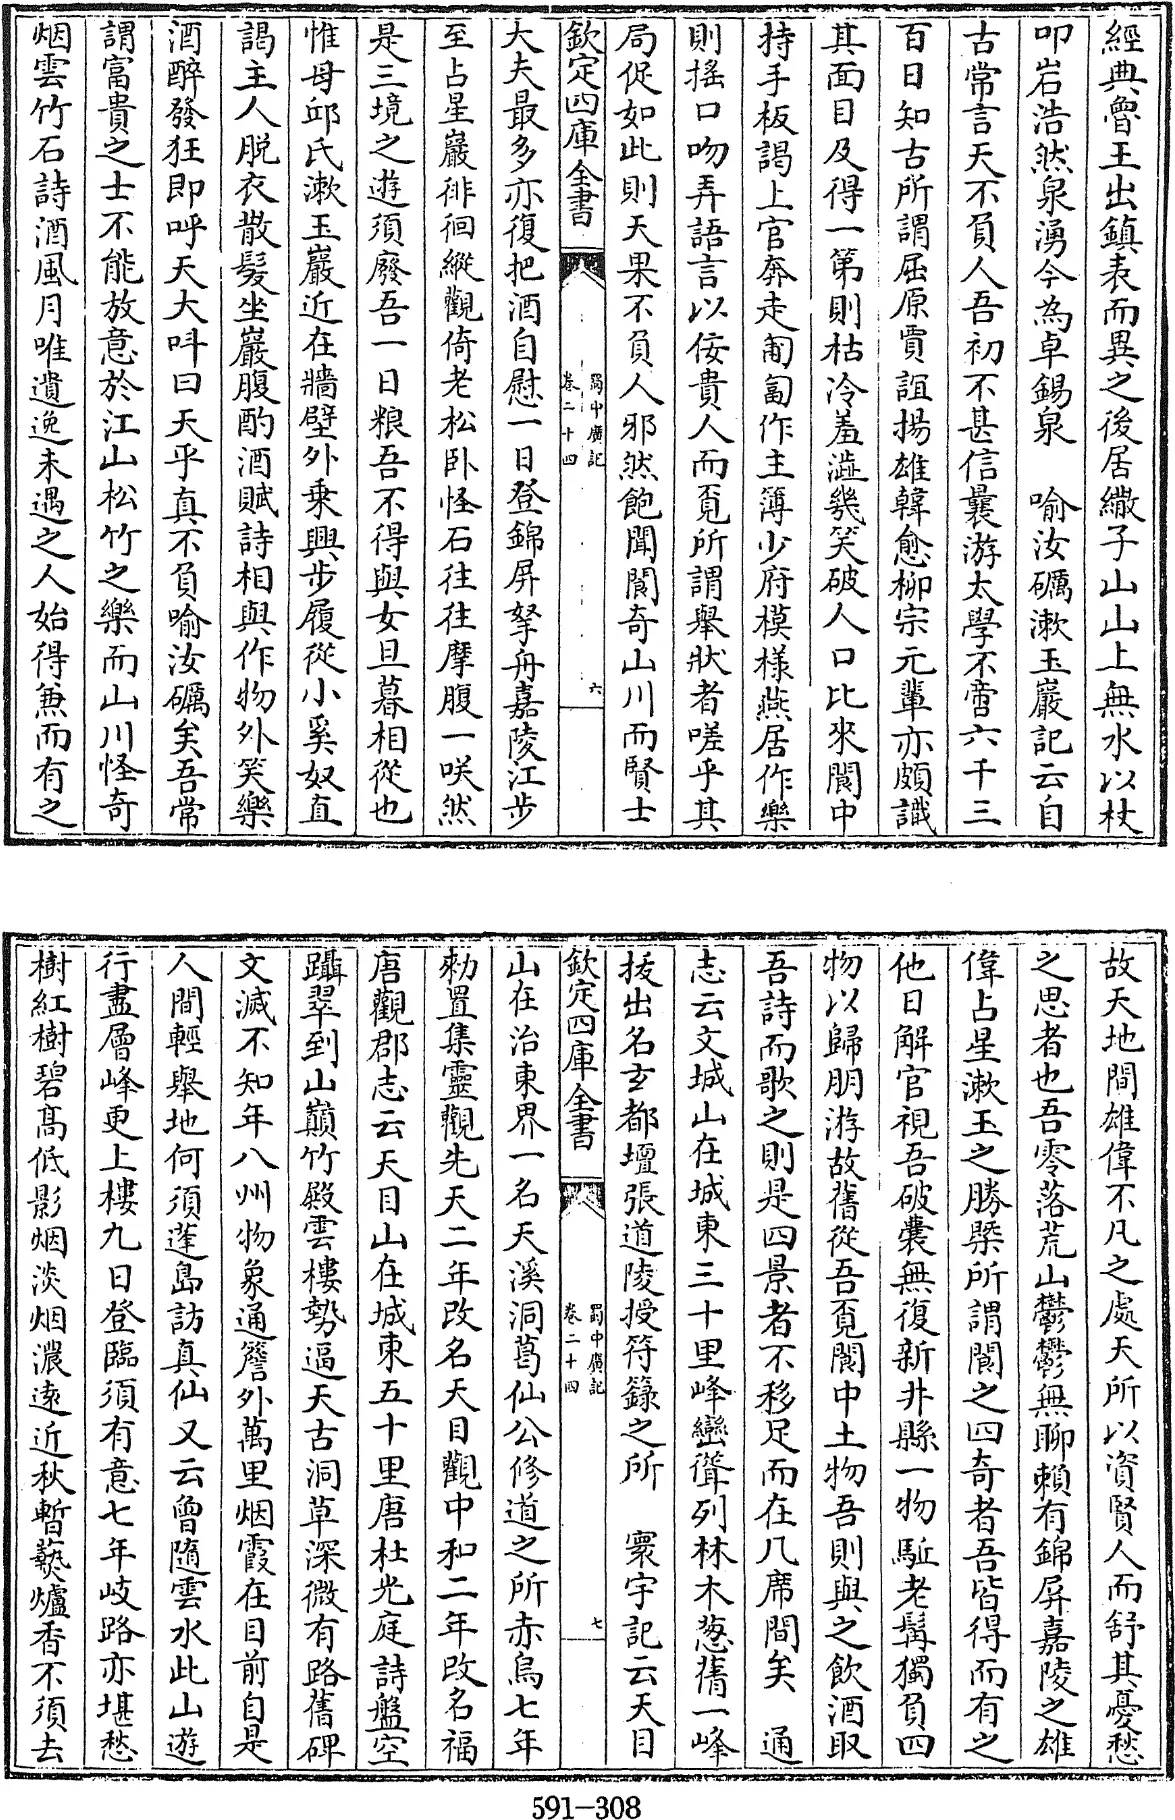 經典魯王出鎮表而異之後居繖子山山上無水以杖
叩岩浩然泉湧今為卓錫泉　喻汝礪漱玉巖記云自
古常言天不負人吾初不甚信曩游太學不啻六千三
百日知古所謂屈原賈誼揚雄韓愈柳宗元輩亦頗識
其面目及得一第則枯冷羞澁幾笑破人口比來閬中
持手板謁上官奔走匍匐作主簿少府模樣燕居作樂
則搖口吻弄語言以佞貴人而覓所謂舉狀者嗟乎其
局促如此則天果不負人邪然飽聞閬奇山川而賢士
欽定四庫全書
蜀中廣記
卷二十四
六
大夫最多亦復把酒自慰一日登錦屏拏舟嘉陵江步
至占星巖徘徊縱觀倚老松卧怪石往往摩腹一咲然
是三境之遊須廢吾一日粮吾不得與女旦暮相從也
惟母邱氏漱玉巖近在牆壁外乗興步履從小奚奴直
謁主人脱衣散髪坐巖腹酌酒賦詩相與作物外笑樂
酒醉發狂即呼天大呌曰天乎真不負喻汝礪矣吾常
謂富貴之士不能放意於江山松竹之樂而山川怪奇
烟雲竹石詩酒風月唯遺逸未遇之人始得兼而有之
故天地間雄偉不凡之處天所以資賢人而舒其憂愁
之思者也吾零落荒山鬱鬱無聊賴有錦屏嘉陵之雄
偉占星漱玉之勝槩所謂閬之四奇者吾皆得而有之
他日解官視吾破囊無復新井縣一物駈老髯獨負四
物以歸朋游故舊從吾覓閬中土物吾則與之飲酒取
吾詩而歌之則是四景者不移足而在几席間矣　通
志云文城山在城東三十里峰巒聳列林木葱蒨一峰
拔出名玄都壇張道陵授符籙之所　寰宇記云天目
欽定四庫全書
蜀中廣記
卷二十四
七
山在治東界一名天溪洞葛仙公修道之所赤烏七年
勑置集靈觀先天二年改名天目觀中和二年改名福
唐觀郡志云天目山在城東五十里唐杜光庭詩盤空
躡翠到山巔竹殿雲樓勢逼天古洞草深微有路舊碑
文滅不知年八州物象通簷外萬里烟霞在目前自是
人間輕舉地何須蓬島訪真仙又云曾隨雲水此山遊
行盡層峰更上樓九日登臨須有意七年岐路亦堪愁
樹紅樹碧髙低影烟淡烟濃逺近秋暫爇爐香不須去
591-308